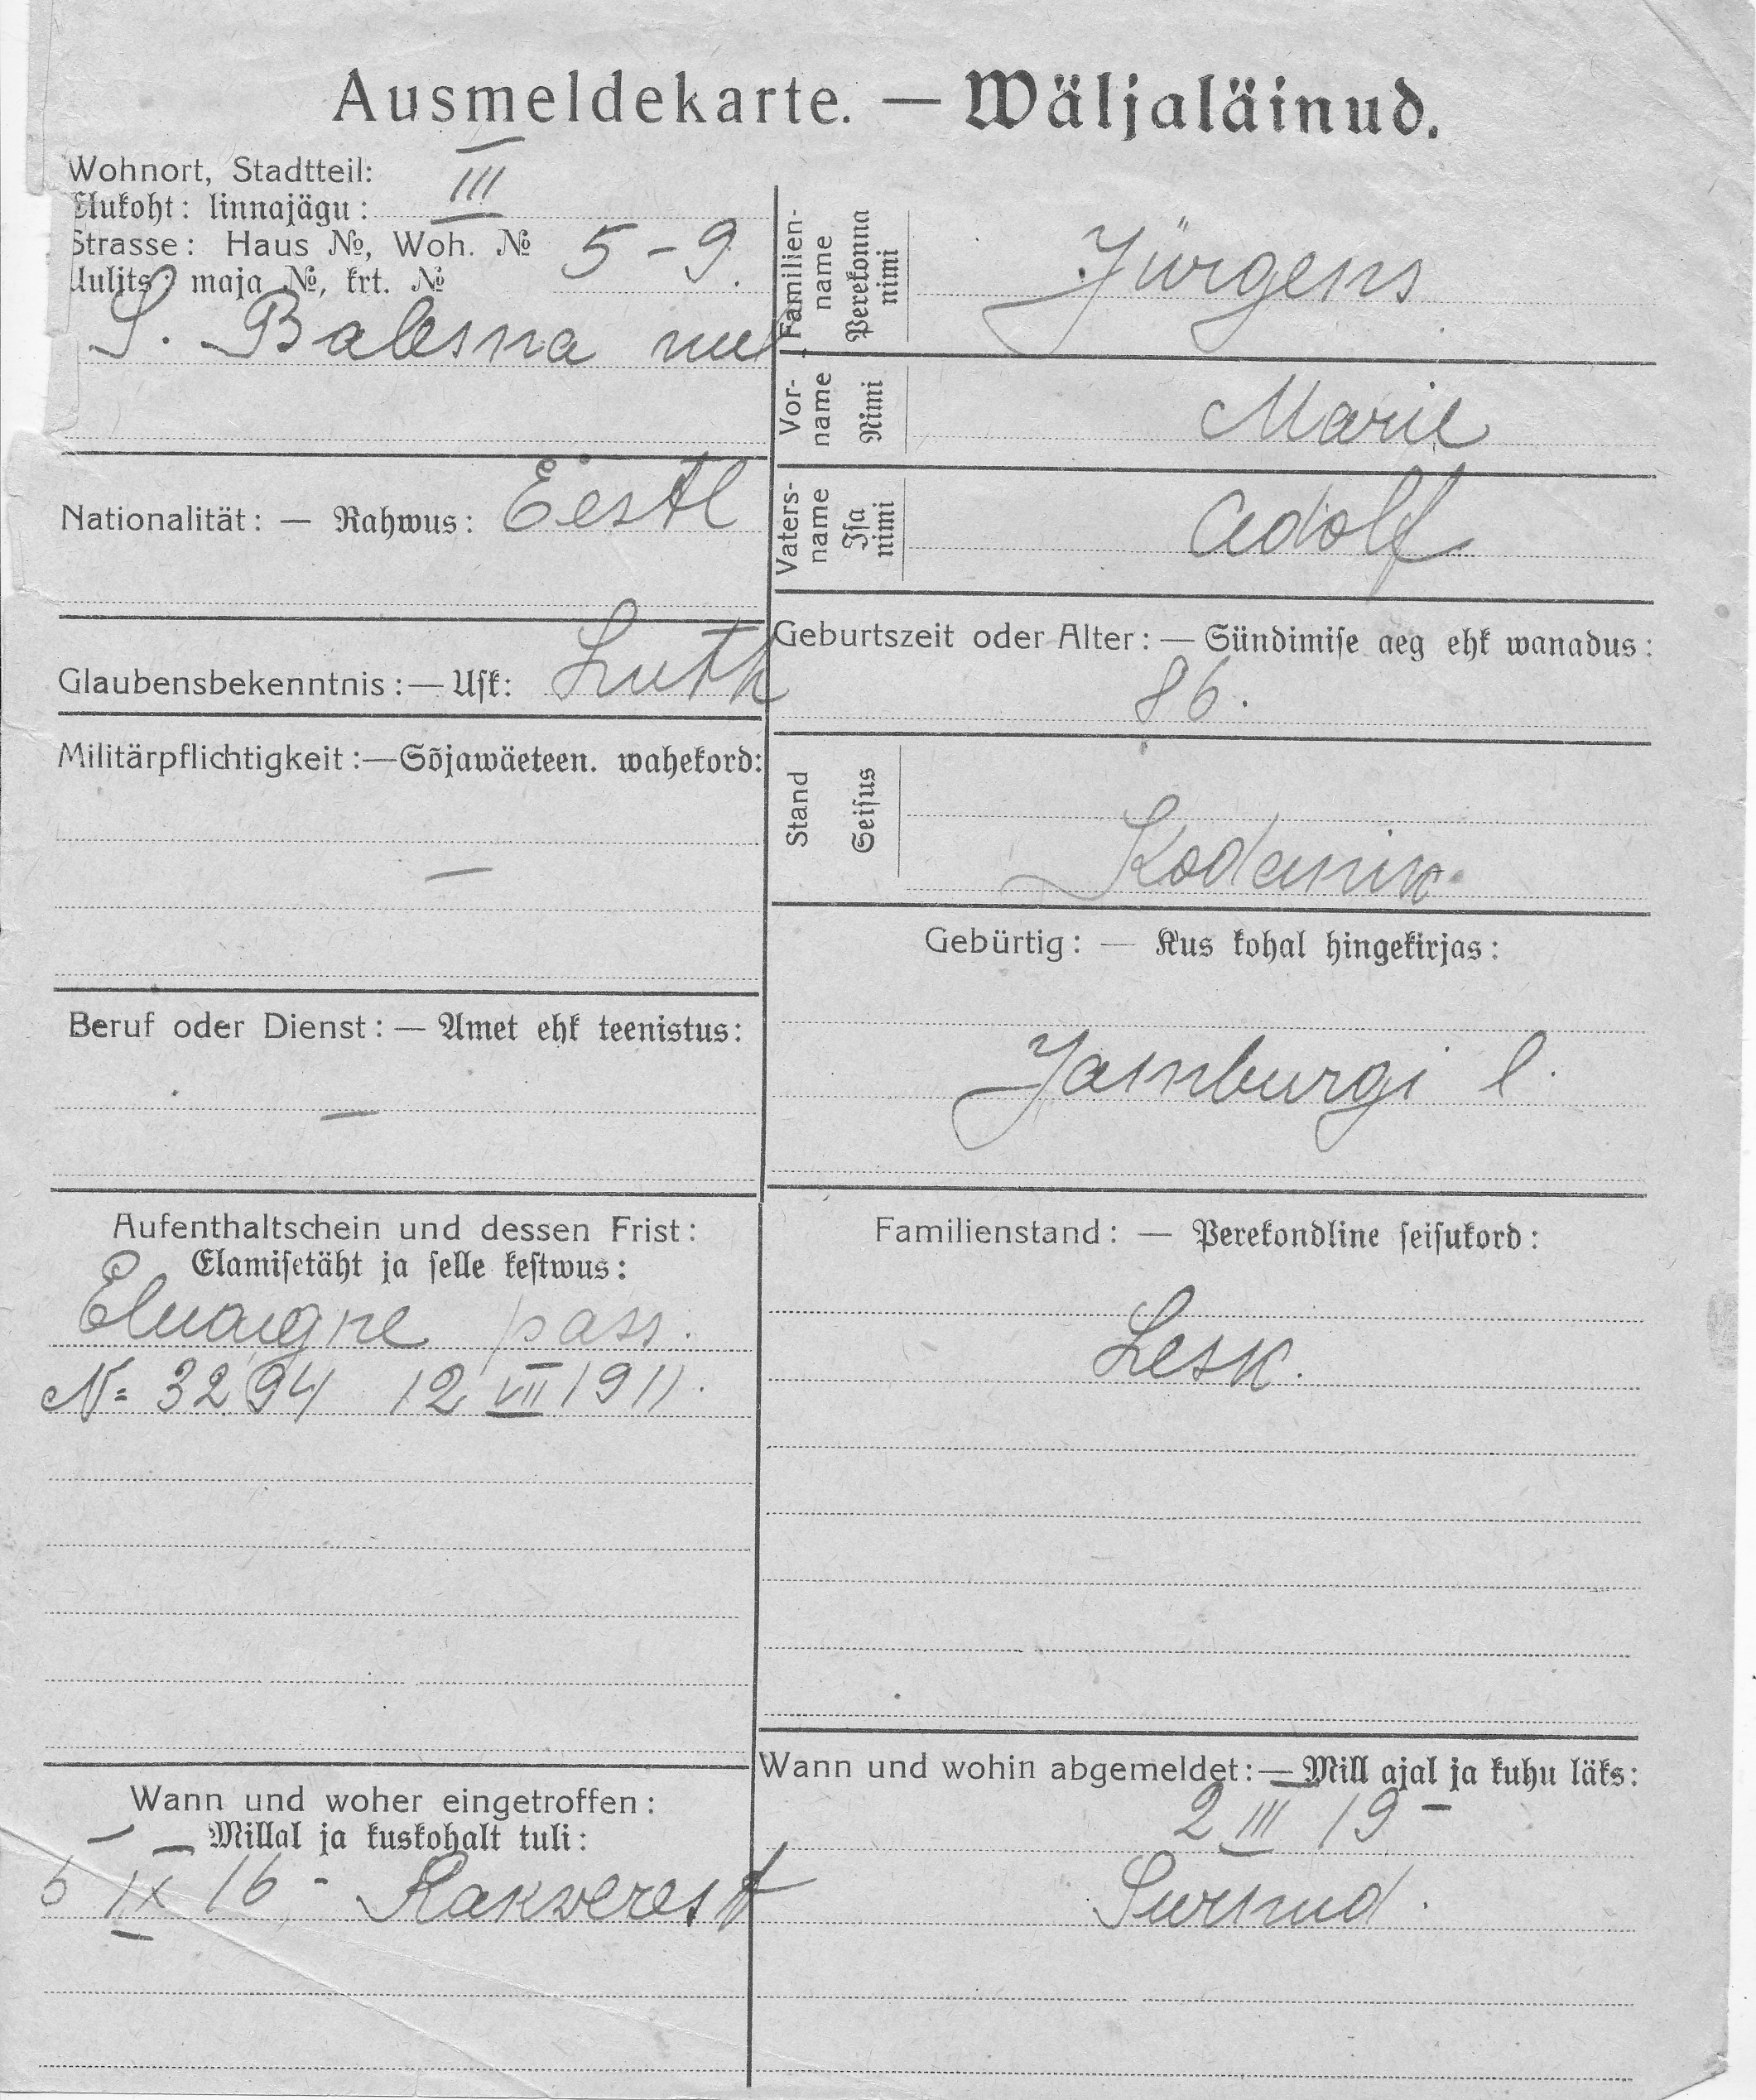 Ausmeldekarte. — Wäljaläinud.
Wohnort, Stadtteil: III
Elukoht: linnajägu:
Strasse: Haus №, Woh. № 5-9.
Uulits, maja №, krt. №
S. Balesna
Nationalität: — Rahwus: Eestl
Glaubensbekenntnis: — Usk: Luth
Militärpflichtigkeit: — Sõjawäeteen. wahekord:
—
Beruf oder Dienst: — Amet ehk teenistus:
—
Aufenthaltschein und dessen Frist:
Elamisetäht ja selle kestwus:
Eluaigne pass.
№ 3294 12 VII 1911.
Wann und woher eingetroffen:
Millal ja kuskohalt tuli:
6 IX 16 - Rakverest
Familien-name Perekonna nimi Jürgens
Vor-name Nimi Marie
Vaters-name Isa nimi Adolf
Geburtszeit oder Alter: — Sündimise aeg ehk wanadus:
86.
Stand Seisus Kodanik
Gebürtig: — Kus kohal hingekirjas:
Jamburgi l.
Familienstand: — Perekondline seisukord:
Lesk.
Wann und wohin abgemeldet: — Mill ajal ja kuhu läks:
2 III 19 -
Surnud.